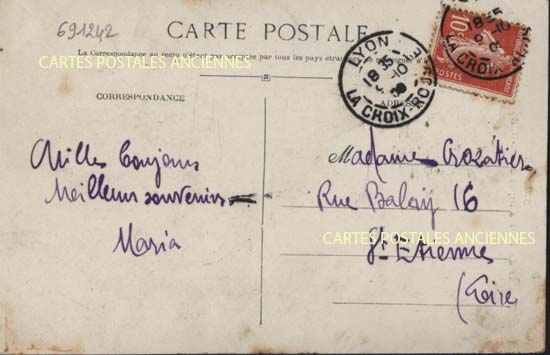 691242
CARTE POSTALE
CARTES POSTALES ANCIENNES
La Correspondance au recto n'est pas acceptée par tous les pays étrangers
CORRESPONDANCE
LYON
18 35
10
LA CROIX-ROUSSE
10
POSTES
Mille bonjours
Meilleurs souvenirs
Maria
Madame
Rue Balaÿ 16
CARTES POSTALES ANCIENNES
St Etienne
(Loire